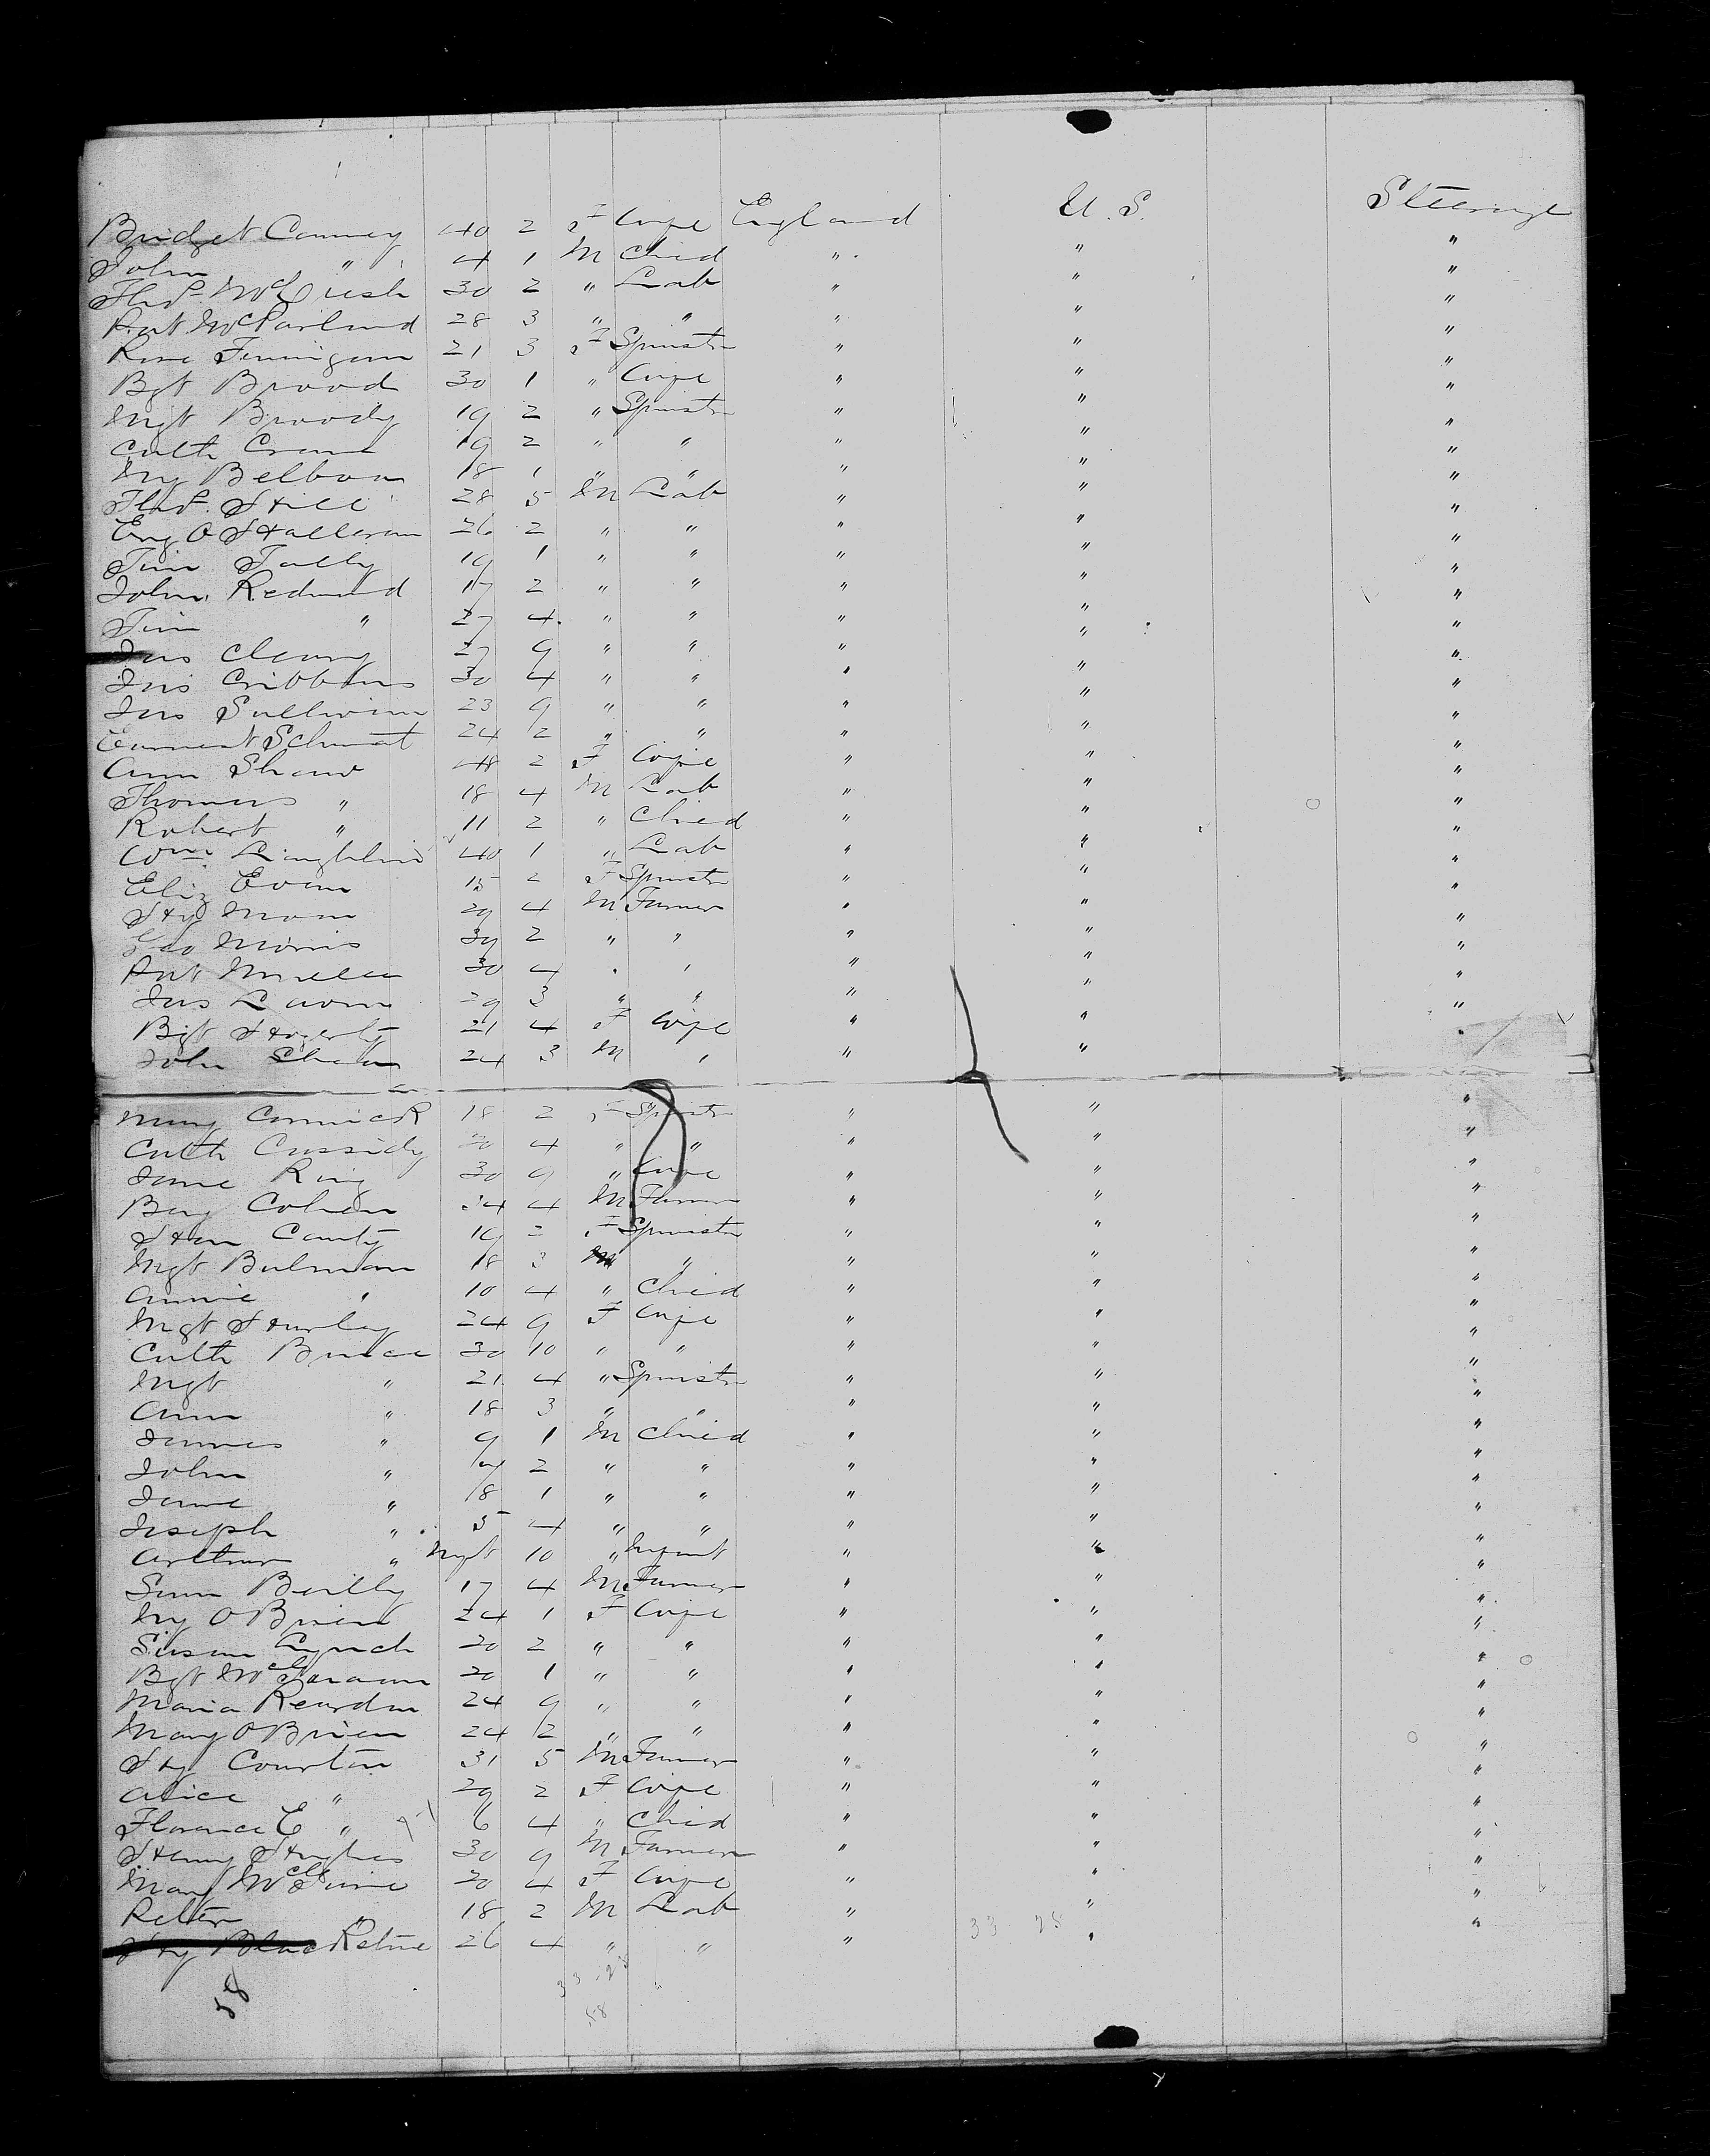 Bridget Canney 40 2 F Wife England U.S. Steerage
John " 4 1 M Child " " "
Thos. McCush 30 2 " Lab " " "
Pat McParland 28 3 " " " " "
Rose Finnigan 21 3 F Spinstr " " "
Bgt Brood 30 1 " Wife " " "
Mgt Broody 19 2 " Spinstr " " "
Cath Crane 19 2 " " " " "
My 18 1 " " " " "
Thos. Hill 28 5 M Lab " " "
Eng O Halleran 26 2 " " " " "
Tim Tally 19 1 " " " " "
John Redmond 17 2 " " " " "
Tim " 27 4 " " " " "
Jas Cleary 27 9 " " " " "
Jas Cribbins 30 4 " " " " "
Jas Sullivan 23 9 " " " " "
24 2 " " " " "
Ann Shaw 48 2 F Wife " " "
Thomas " 18 4 M Lab " " "
Robert " 11 2 " Child " " "
Wm Laughlin 40 1 " Lab " " "
Eliz Evan 15 2 F Spinstr " " "
Hy 29 4 M Farmer " " "
Geo Morris 39 2 " " " " "
Pat 30 4 " " " " "
Jas 29 3 " " " " "
Bgt Hogerty 21 4 F Wife " " "
John 24 3 M " " " "
Mary Cormick 18 2 F Spinstr " " "
Cath Cassidy 20 4 " " " " "
Jane Ring 30 9 " Wife " " "
Cohen 34 4 M Farmer " " "
Han Canty 19 2 F Spinstr " " "
Mgt Bulman 18 3 " " " "
Annie " 10 4 " Child " " "
Mgt Hurley 24 9 F Wife " " "
Cath Bruce 30 10 " " " " "
Mgt " 21 4 " Spinstr " " "
Ann " 18 3 " " " " "
James " 9 1 M Child " " "
John " 2 " " " " "
Jane " 8 1 " " " " "
Joseph " 5 4 " " " " "
Arthur " Inft 10 " Infant " " "
Sam Beilly 17 4 M Farmer " " "
My OBrien 24 1 F Wife " " "
Susan Lynch 20 2 " " " " "
Bgt 20 1 " " " " "
Maria Reardon 24 9 " " " " "
Mary OBrien 24 2 " " " " "
Hy Courtin 31 5 M Farmer " " "
Alice " 29 2 F Wife " " "
Florence E " 6 4 " Child " " "
Henry Hughes 30 9 M Farmer " " "
Mary McGuire 20 4 F Wife " " "
Peter " 18 2 M Lab " " "
Hy Blackstone 26 4 " " " " "
33 25
33 25
58
58